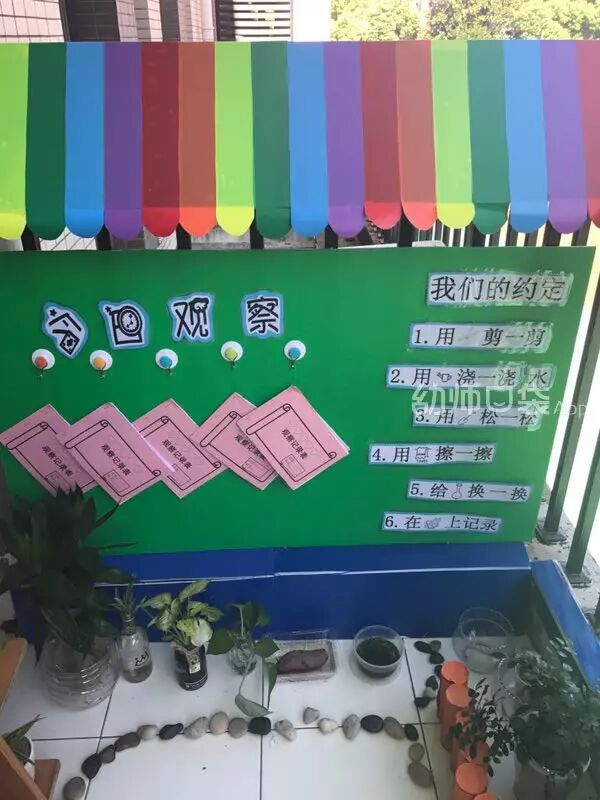 今日观察
我们的约定
1.用 剪一剪
2.用 浇一浇 水
3.用 松一松
4.用 擦一擦
5.给 换一换
6.在 上记录
观察记录表
观察记录表
观察记录表
观察记录表
观察记录表
幼师口袋 App